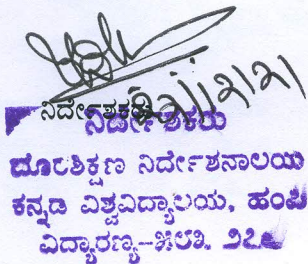 ನಿರ್ದೇಶಕರು
ನಿರ್ದೇಶಕರು
ದೂರಶಿಕ್ಷಣ ನಿರ್ದೇಶನಾಲಯ
ಕನ್ನಡ ವಿಶ್ವವಿದ್ಯಾಲಯ, ಹಂಪಿ
ವಿದ್ಯಾರಣ್ಯ-೫೮೩ ೨೭೬